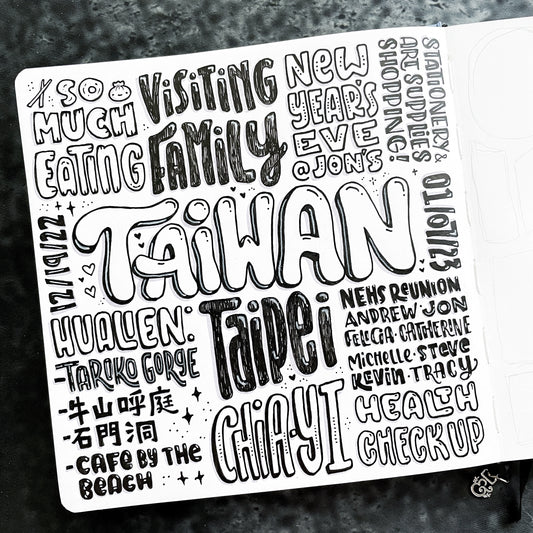 SO
MUCH
EATING
VISITING
FAMILY
NEW
YEAR'S
EVE
@JON'S
STATIONERY &
ART SUPPLIES
SHOPPING!
12/19/22
TAIWAN
01/07/23
HUALIEN:
-TAROKO GORGE
-牛山呼庭
-石門洞
-CAFE BY THE
BEACH
TAIPEI
CHIAYI
NEHS REUNION
ANDREW·JON
FELICIA·CATHERINE
MICHELLE·STEVE
KEVIN·TRACY
HEALTH
CHECKUP